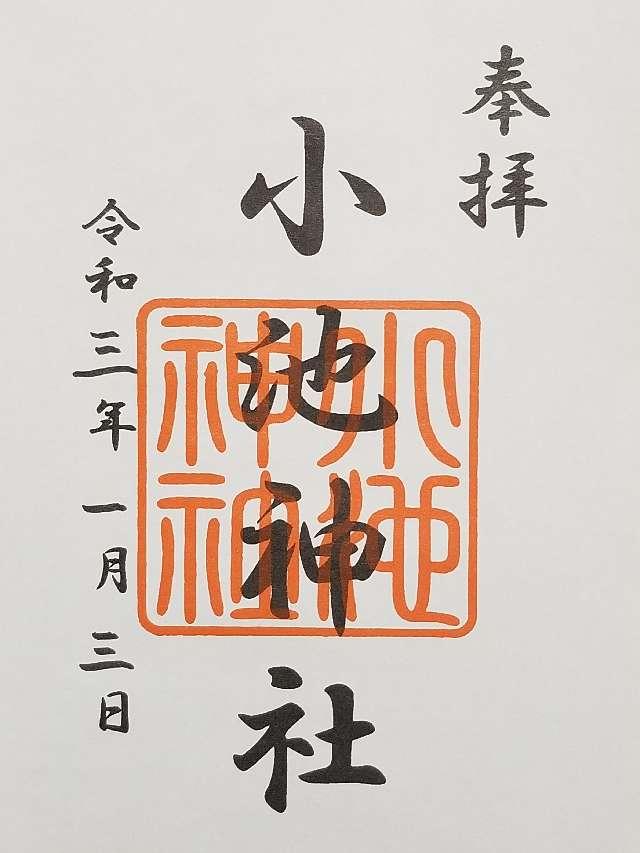 奉拝
小池神社
小池
神社
令和三年一月三日